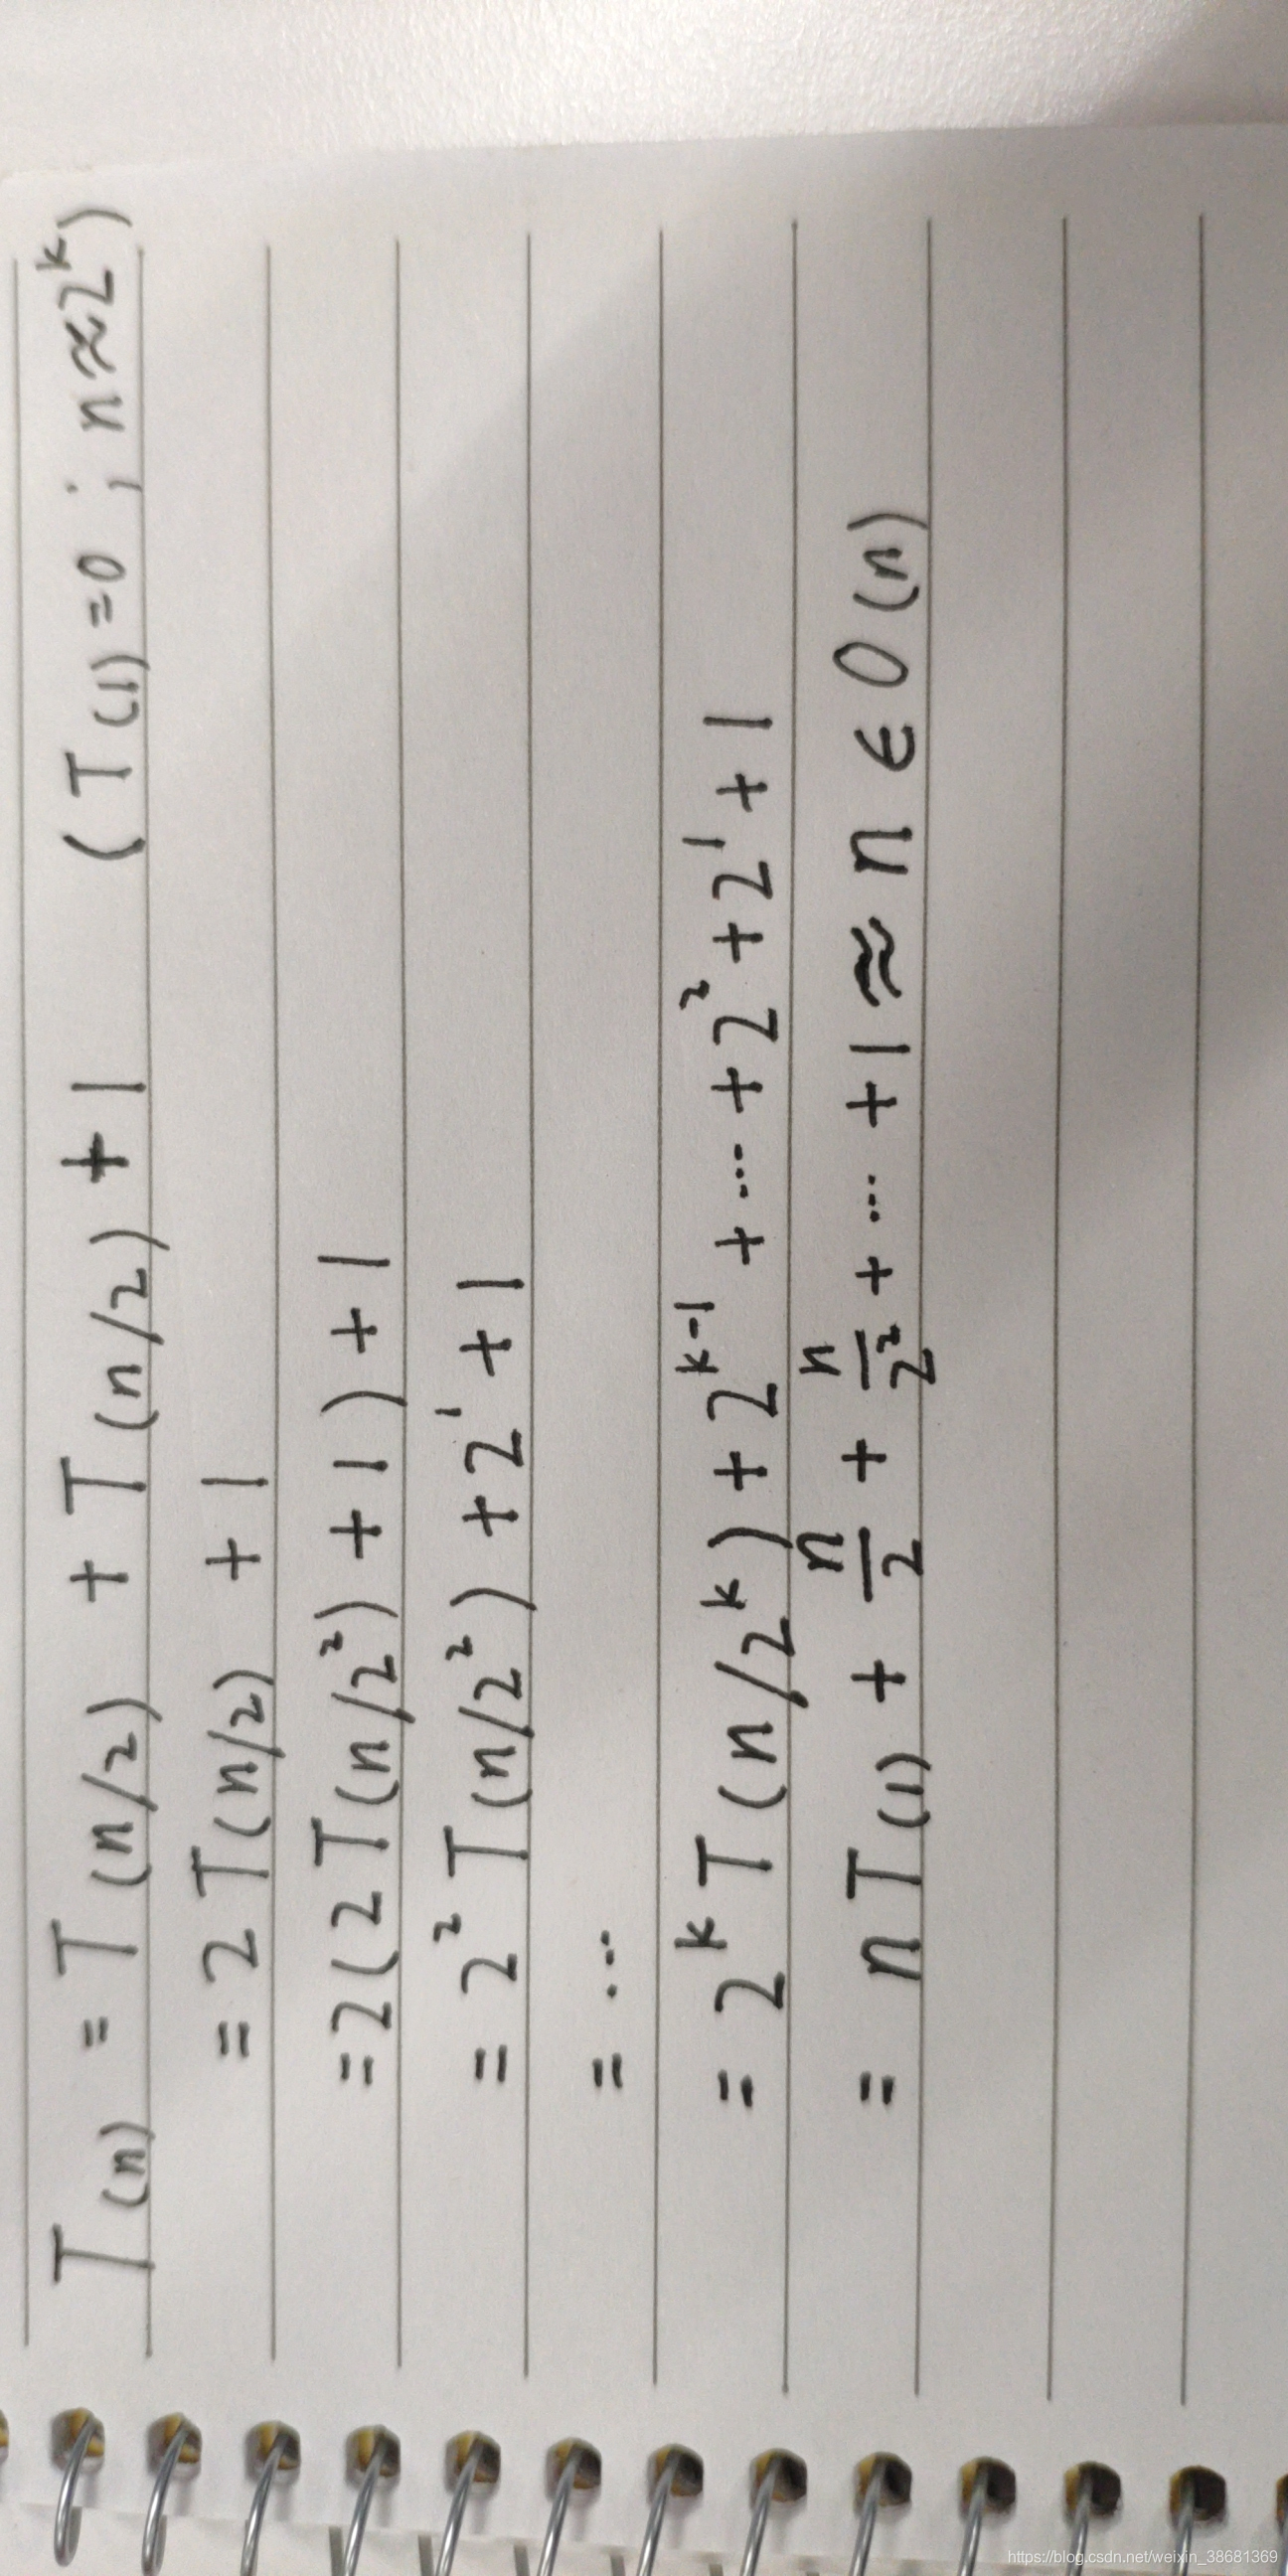 T(n) = T(n/2) + T(n/2) + 1 (T(1)=0 ; n≈2^k)
= 2T(n/2) + 1
=2(2T(n/2²) + 1) + 1
= 2²T(n/2²) + 2¹ + 1
= ...
= 2^k T(n/2^k) + 2^(k-1) + ... + 2² + 2¹ + 1
= nT(1) + n/2 + n/2² + ... + 1 ≈ n ∈ O(n)
https://blog.csdn.net/weixin_38681369